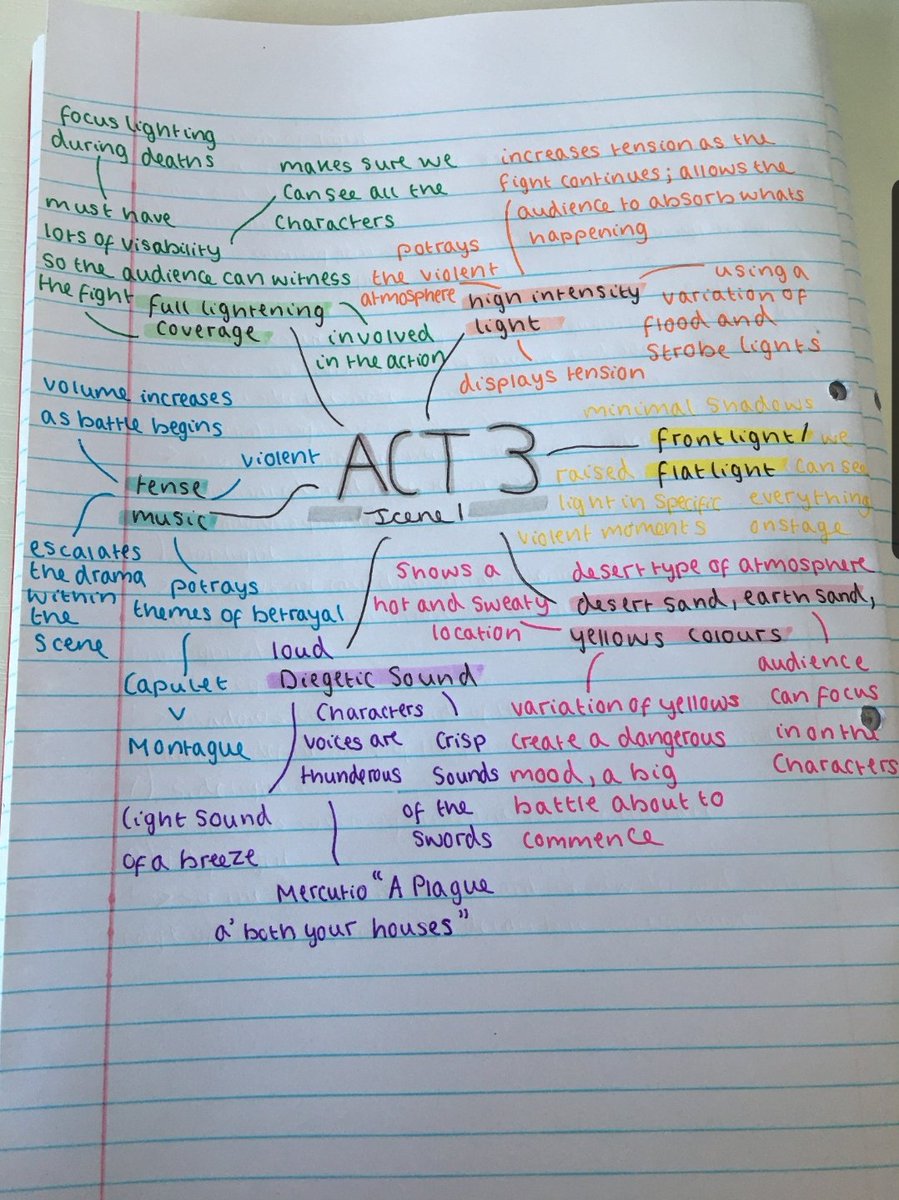 focus lighting
during deaths
must have
lots of visability
so the audience can witness
the fight
full lightening
coverage
makes sure we
can see all the
characters
involved
in the action
potrays
the violent
atmosphere
increases tension as the
fight continues; allows the
audience to absorb whats
happening
high intensity
light
using a
variation of
flood and
strobe lights
displays tension
volume increases
as battle begins
violent
tense
music
escalates
the drama
within
the
scene
potrays
themes of betrayal
Capulet
v
Montague
ACT 3
Scene 1
minimal shadows
frontlight/
flatlight
we
can see
everything
onstage
raised
light in specific
violent moments
shows a
hot and sweaty
location
desert type of atmosphere
desert sand, earth sand,
yellows colours
variation of yellows
create a dangerous
mood, a big
battle about to
commence
audience
can focus
in on the
characters
loud
Diegetic Sound
Characters
voices are
thunderous
crisp
sounds
of the
swords
light sound
of a breeze
Mercutio "A Plague
a' both your houses"